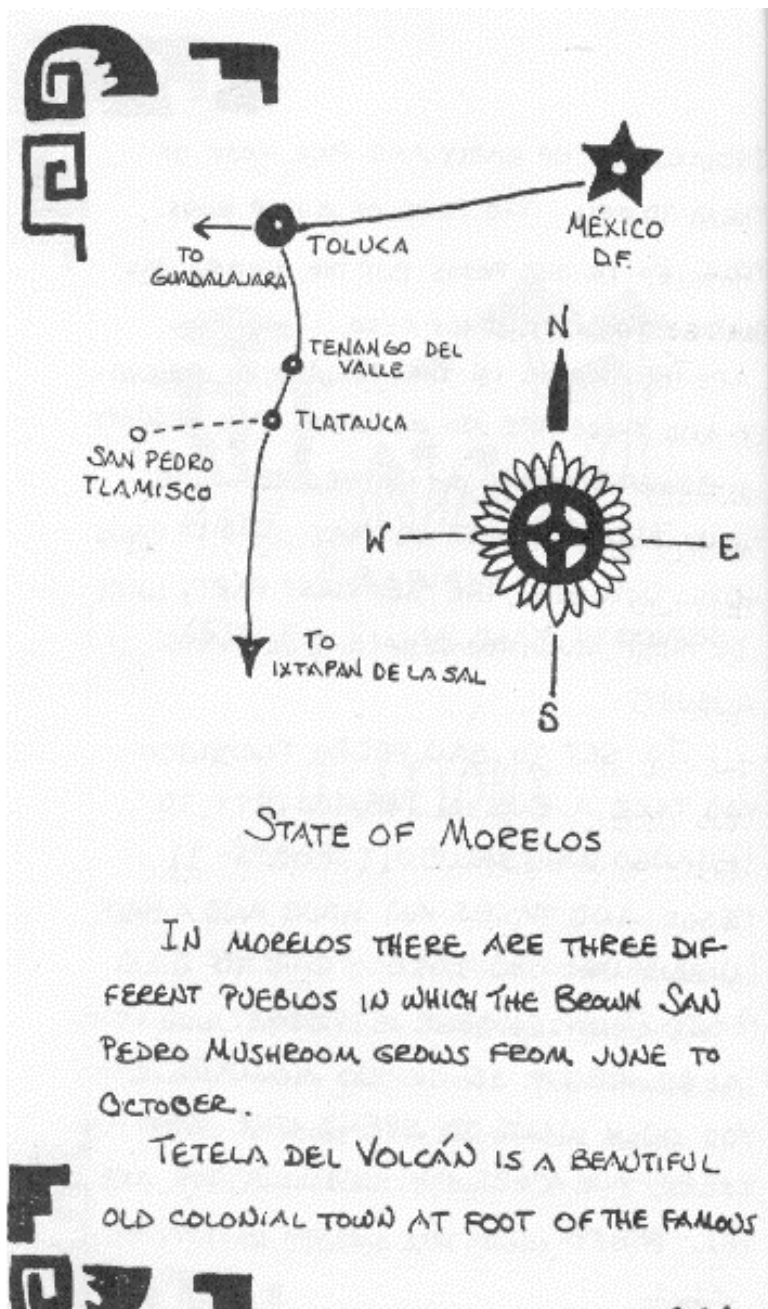 MÉXICO
D.F.
TOLUCA
TO
GUADALAJARA
N
TENANGO DEL
VALLE
TLATAUCA
SAN PEDRO
TLAMISCO
W
E
TO
IXTAPAN DE LA SAL
S
STATE OF MORELOS
IN MORELOS THERE ARE THREE DIF-
FERENT PUEBLOS IN WHICH THE BROWN SAN
PEDRO MUSHROOM GROWS FROM JUNE TO
OCTOBER.
TETELA DEL VOLCÁN IS A BEAUTIFUL
OLD COLONIAL TOWN AT FOOT OF THE FAMOUS